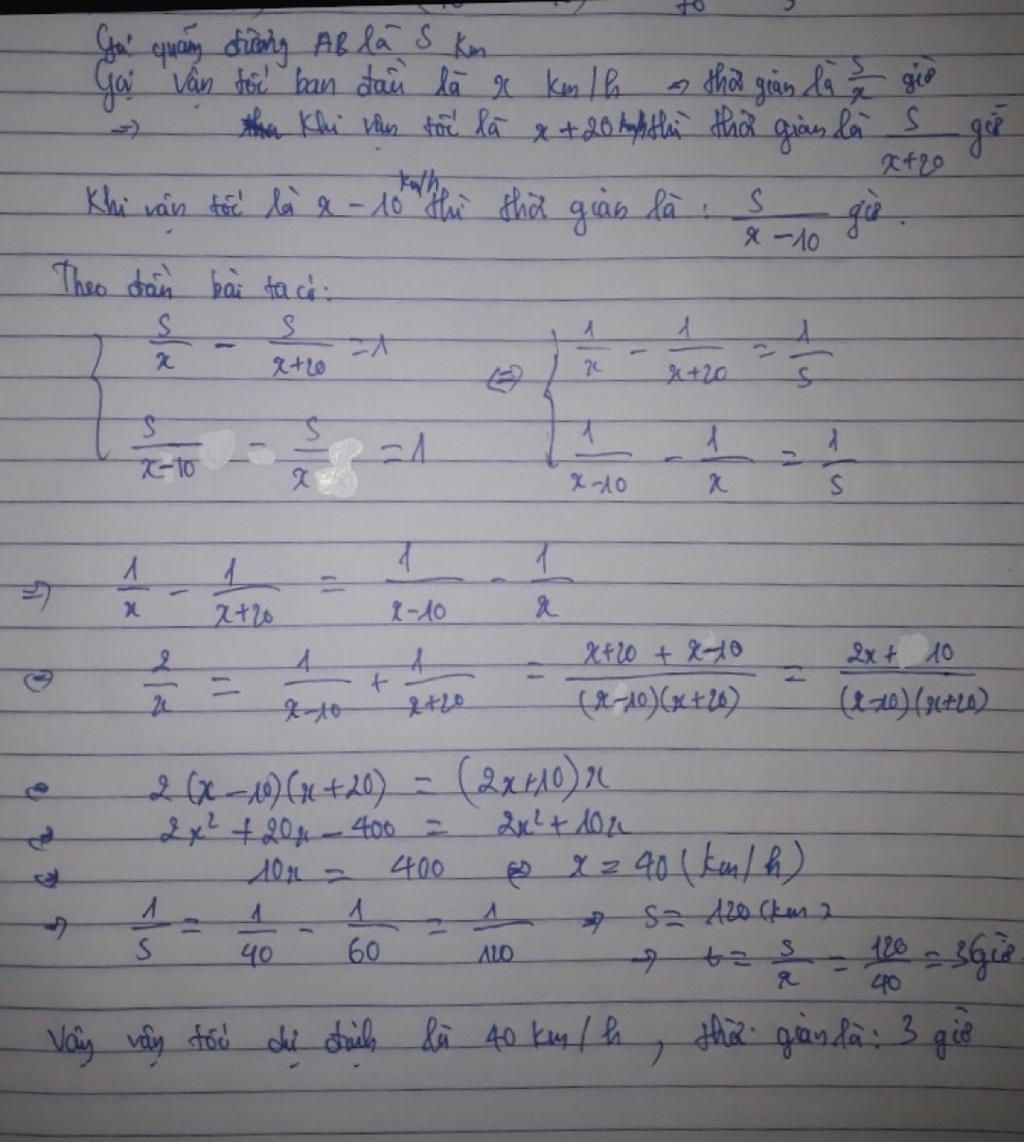 Gọi quãng đường AB là S Km
Gọi vận tốc ban đầu là x km/h => thời gian là S/x giờ
=> Khi vận tốc là x + 20 km/h thì thời gian là S/(x+20) giờ
Khi vận tốc là x - 10 km/h thì thời gian là : S/(x-10) giờ.
Theo đầu bài ta có:
{ S/x - S/(x+20) = 1 <=> { 1/x - 1/(x+20) = 1/S
S/(x-10) - S/x = 1 1/(x-10) - 1/x = 1/S
=> 1/x - 1/(x+20) = 1/(x-10) - 1/x
<=> 2/x = 1/(x-10) + 1/(x+20) = (x+20 + x-10)/((x-10)(x+20)) = (2x + 10)/((x-10)(x+20))
<=> 2(x-10)(x+20) = (2x+10)x
<=> 2x² + 20x - 400 = 2x² + 10x
<=> 10x = 400 <=> x = 40 (km/h)
=> 1/S = 1/40 - 1/60 = 1/120 => S = 120 (km)
=> t = S/x = 120/40 = 3 giờ
Vậy vận tốc dự định là 40 km/h , thời gian là : 3 giờ